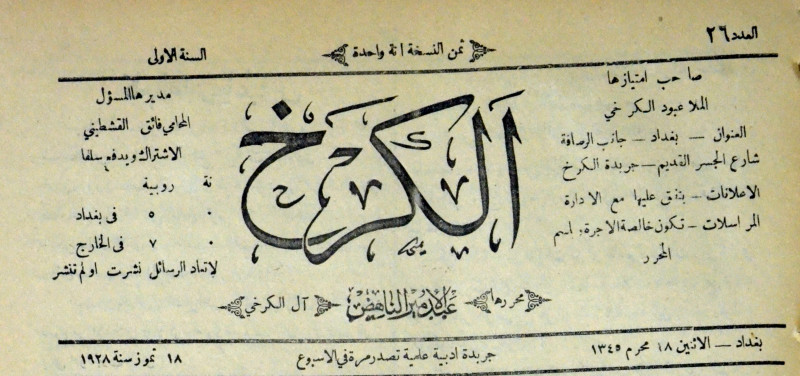 العدد ٢٦
ثمن النسخة انة واحدة
السنة الاولى
صاحب امتيازها
الملا عبود الكرخي
العنوان — بغداد — جانب الرصافة
شارع الجسر القديم — جريدة الكرخ
الاعلانات — يتفق عليها مع الادارة
المراسلات — تكون خالصة الاجرة باسم
المحرر
الكرخ
محررها
عبد الامير الناهض
آل الكرخي
مديرها المسؤل
المحامي فائق القشطيني
الاشتراك ويدفع سلفا
روبية
٥ في بغداد
٧ في الخارج
لاتعاد الرسائل نشرت او لم تنشر
بغداد — الاثنين ١٨ محرم ١٣٤٥
جريدة ادبية عامية تصدر مرة في الاسبوع
١٨ تموز سنة ١٩٢٨